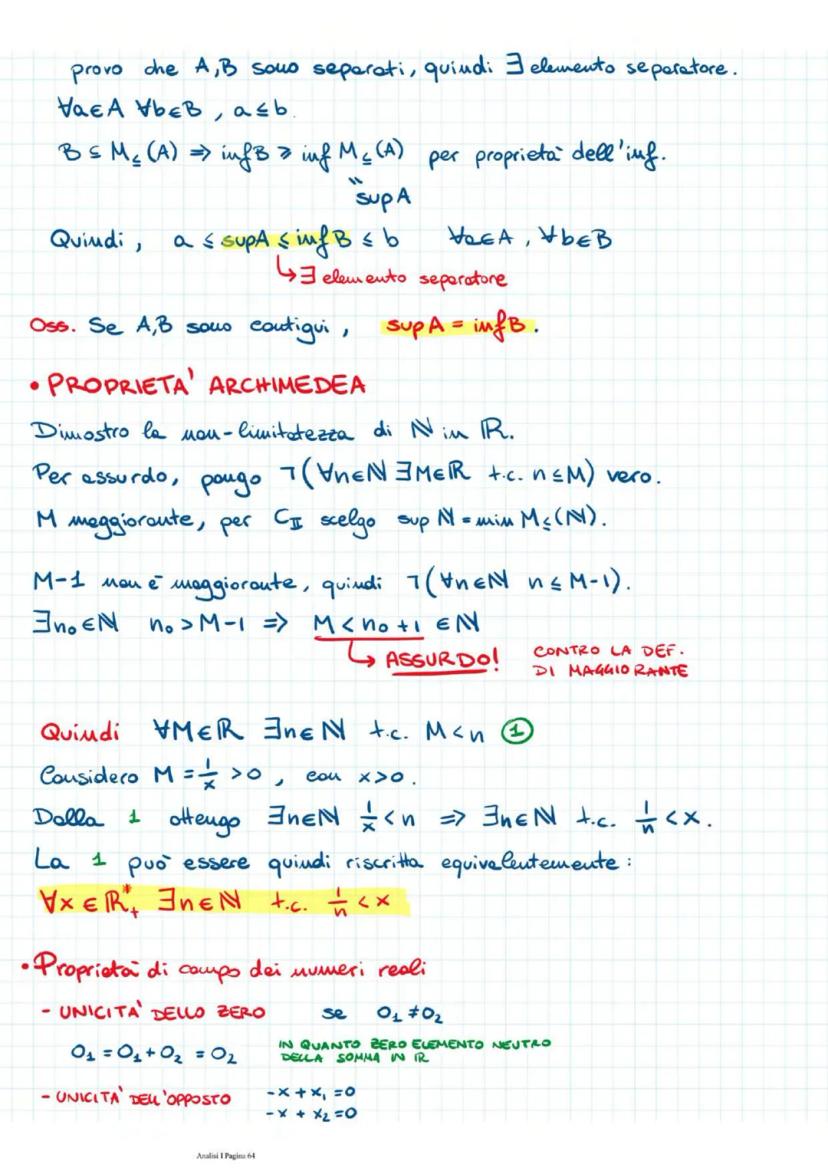 provo che A,B sono separati, quindi ∃ elemento separatore.
∀a∈A ∀b∈B, a≤b.
B ⊆ M≤(A) ⇒ inf B ≥ inf M≤(A) per proprietà dell'inf.
"
sup A
Quindi, a ≤ sup A ≤ inf B ≤ b ∀a∈A, ∀b∈B
↳ ∃ elemento separatore
Oss. Se A,B sono contigui, sup A = inf B.
• PROPRIETA' ARCHIMEDEA
Dimostro la non-limitatezza di ℕ in ℝ.
Per assurdo, pongo ㄱ(∀n∈ℕ ∃M∈ℝ t.c. n≤M) vero.
M maggiorante, per C_II scelgo sup ℕ = min M≤(ℕ).
M-1 non è maggiorante, quindi ㄱ(∀n∈ℕ n≤M-1).
∃n₀∈ℕ n₀>M-1 ⇒ M<n₀+1 ∈ℕ
↳ ASSURDO! CONTRO LA DEF.
DI MAGGIORANTE
Quindi ∀M∈ℝ ∃n∈ℕ t.c. M<n ①
Considero M = 1/x >0, con x>0.
Dalla 1 ottengo ∃n∈ℕ 1/x<n ⇒ ∃n∈ℕ t.c. 1/n<x.
La 1 può essere quindi riscritta equivalentemente:
∀x∈ℝ*₊, ∃n∈ℕ t.c. 1/n<x
• Proprietà di campo dei numeri reali
- UNICITA' DELLO ZERO se 0₁≠0₂
0₁=0₁+0₂=0₂ IN QUANTO ZERO ELEMENTO NEUTRO
DELLA SOMMA IN ℝ
- UNICITA' DELL'OPPOSTO -x+x₁=0
-x+x₂=0
Analisi I Pagina 64